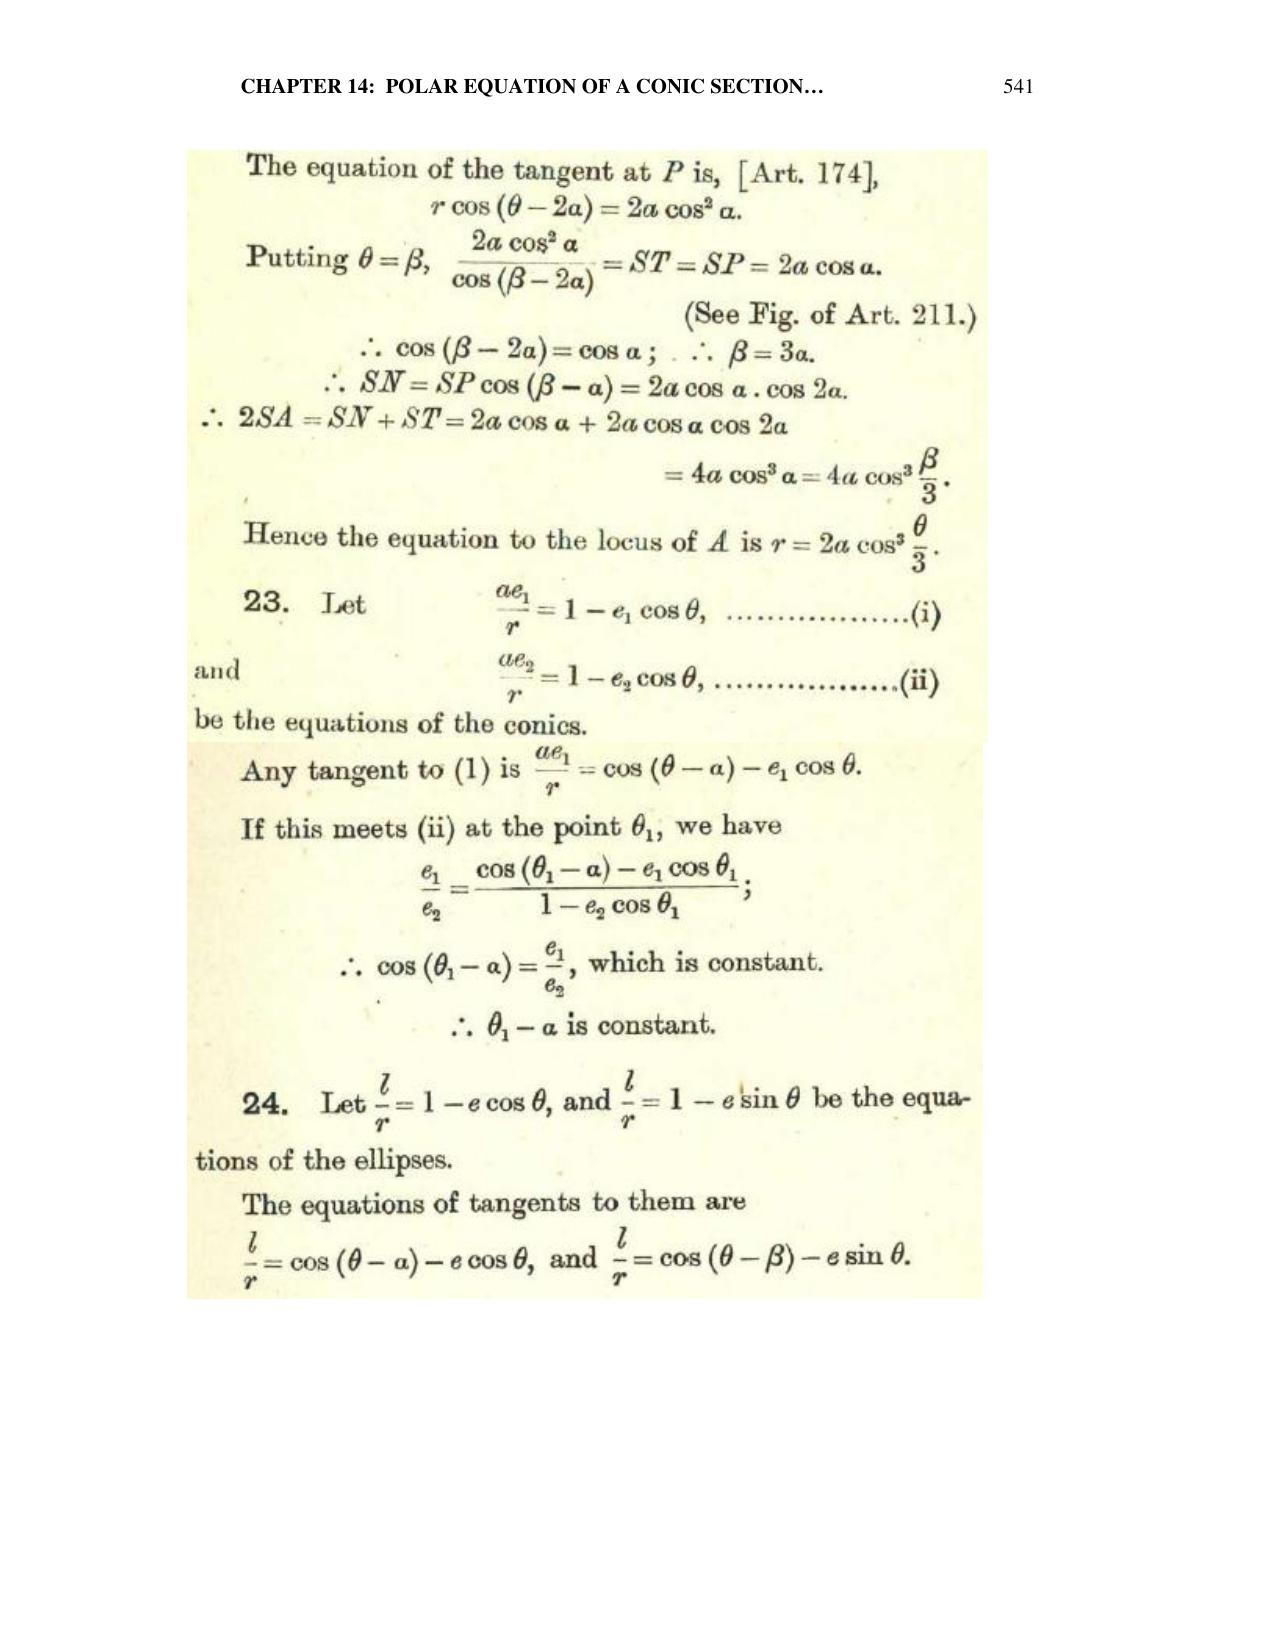 CHAPTER 14: POLAR EQUATION OF A CONIC SECTION… 541
The equation of the tangent at P is, [Art. 174],
r cos (θ − 2α) = 2a cos² α.
Putting θ = β, 2a cos² α / cos (β − 2α) = ST = SP = 2a cos α.
(See Fig. of Art. 211.)
∴ cos (β − 2α) = cos α ; ∴ β = 3α.
∴ SN = SP cos (β − α) = 2a cos α . cos 2α.
∴ 2SA = SN + ST = 2a cos α + 2a cos α cos 2α
= 4a cos³ α = 4a cos³ β/3.
Hence the equation to the locus of A is r = 2a cos³ θ/3.
23. Let ae₁/r = 1 − e₁ cos θ, ..................(i)
and ae₂/r = 1 − e₂ cos θ, ..................(ii)
be the equations of the conics.
Any tangent to (1) is ae₁/r = cos (θ − α) − e₁ cos θ.
If this meets (ii) at the point θ₁, we have
e₁/e₂ = cos (θ₁ − α) − e₁ cos θ₁ / 1 − e₂ cos θ₁ ;
∴ cos (θ₁ − α) = e₁/e₂, which is constant.
∴ θ₁ − α is constant.
24. Let l/r = 1 − e cos θ, and l/r = 1 − e sin θ be the equa-
tions of the ellipses.
The equations of tangents to them are
l/r = cos (θ − α) − e cos θ, and l/r = cos (θ − β) − e sin θ.